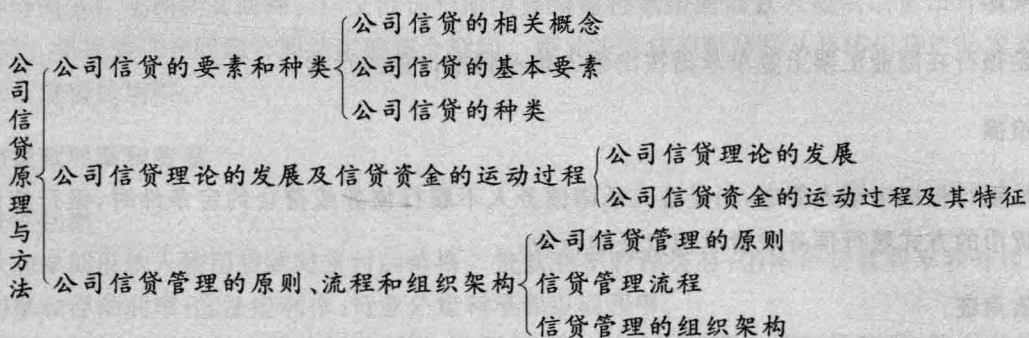 公司信贷原理与方法
公司信贷的要素和种类
公司信贷的相关概念
公司信贷的基本要素
公司信贷的种类
公司信贷理论的发展及信贷资金的运动过程
公司信贷理论的发展
公司信贷资金的运动过程及其特征
公司信贷管理的原则、流程和组织架构
公司信贷管理的原则
信贷管理流程
信贷管理的组织架构